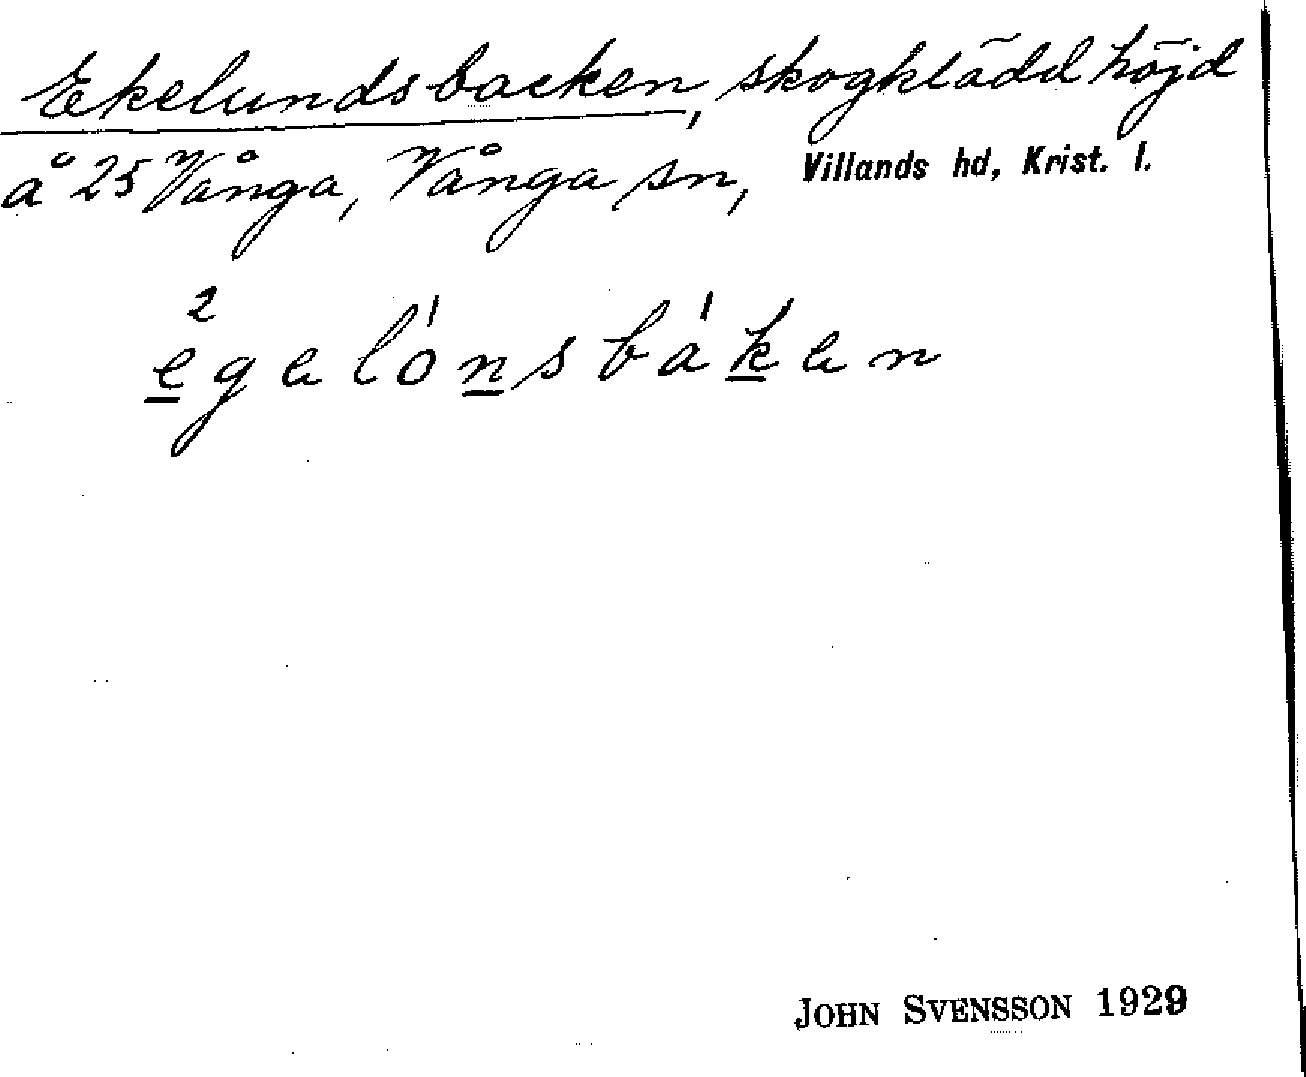 Ekelundsbacken, skogklädd höjd
å 25 Vånga, Vånga sn, Villands hd, Krist. l.
2egelónsbáken
JOHN SVENSSON 1929